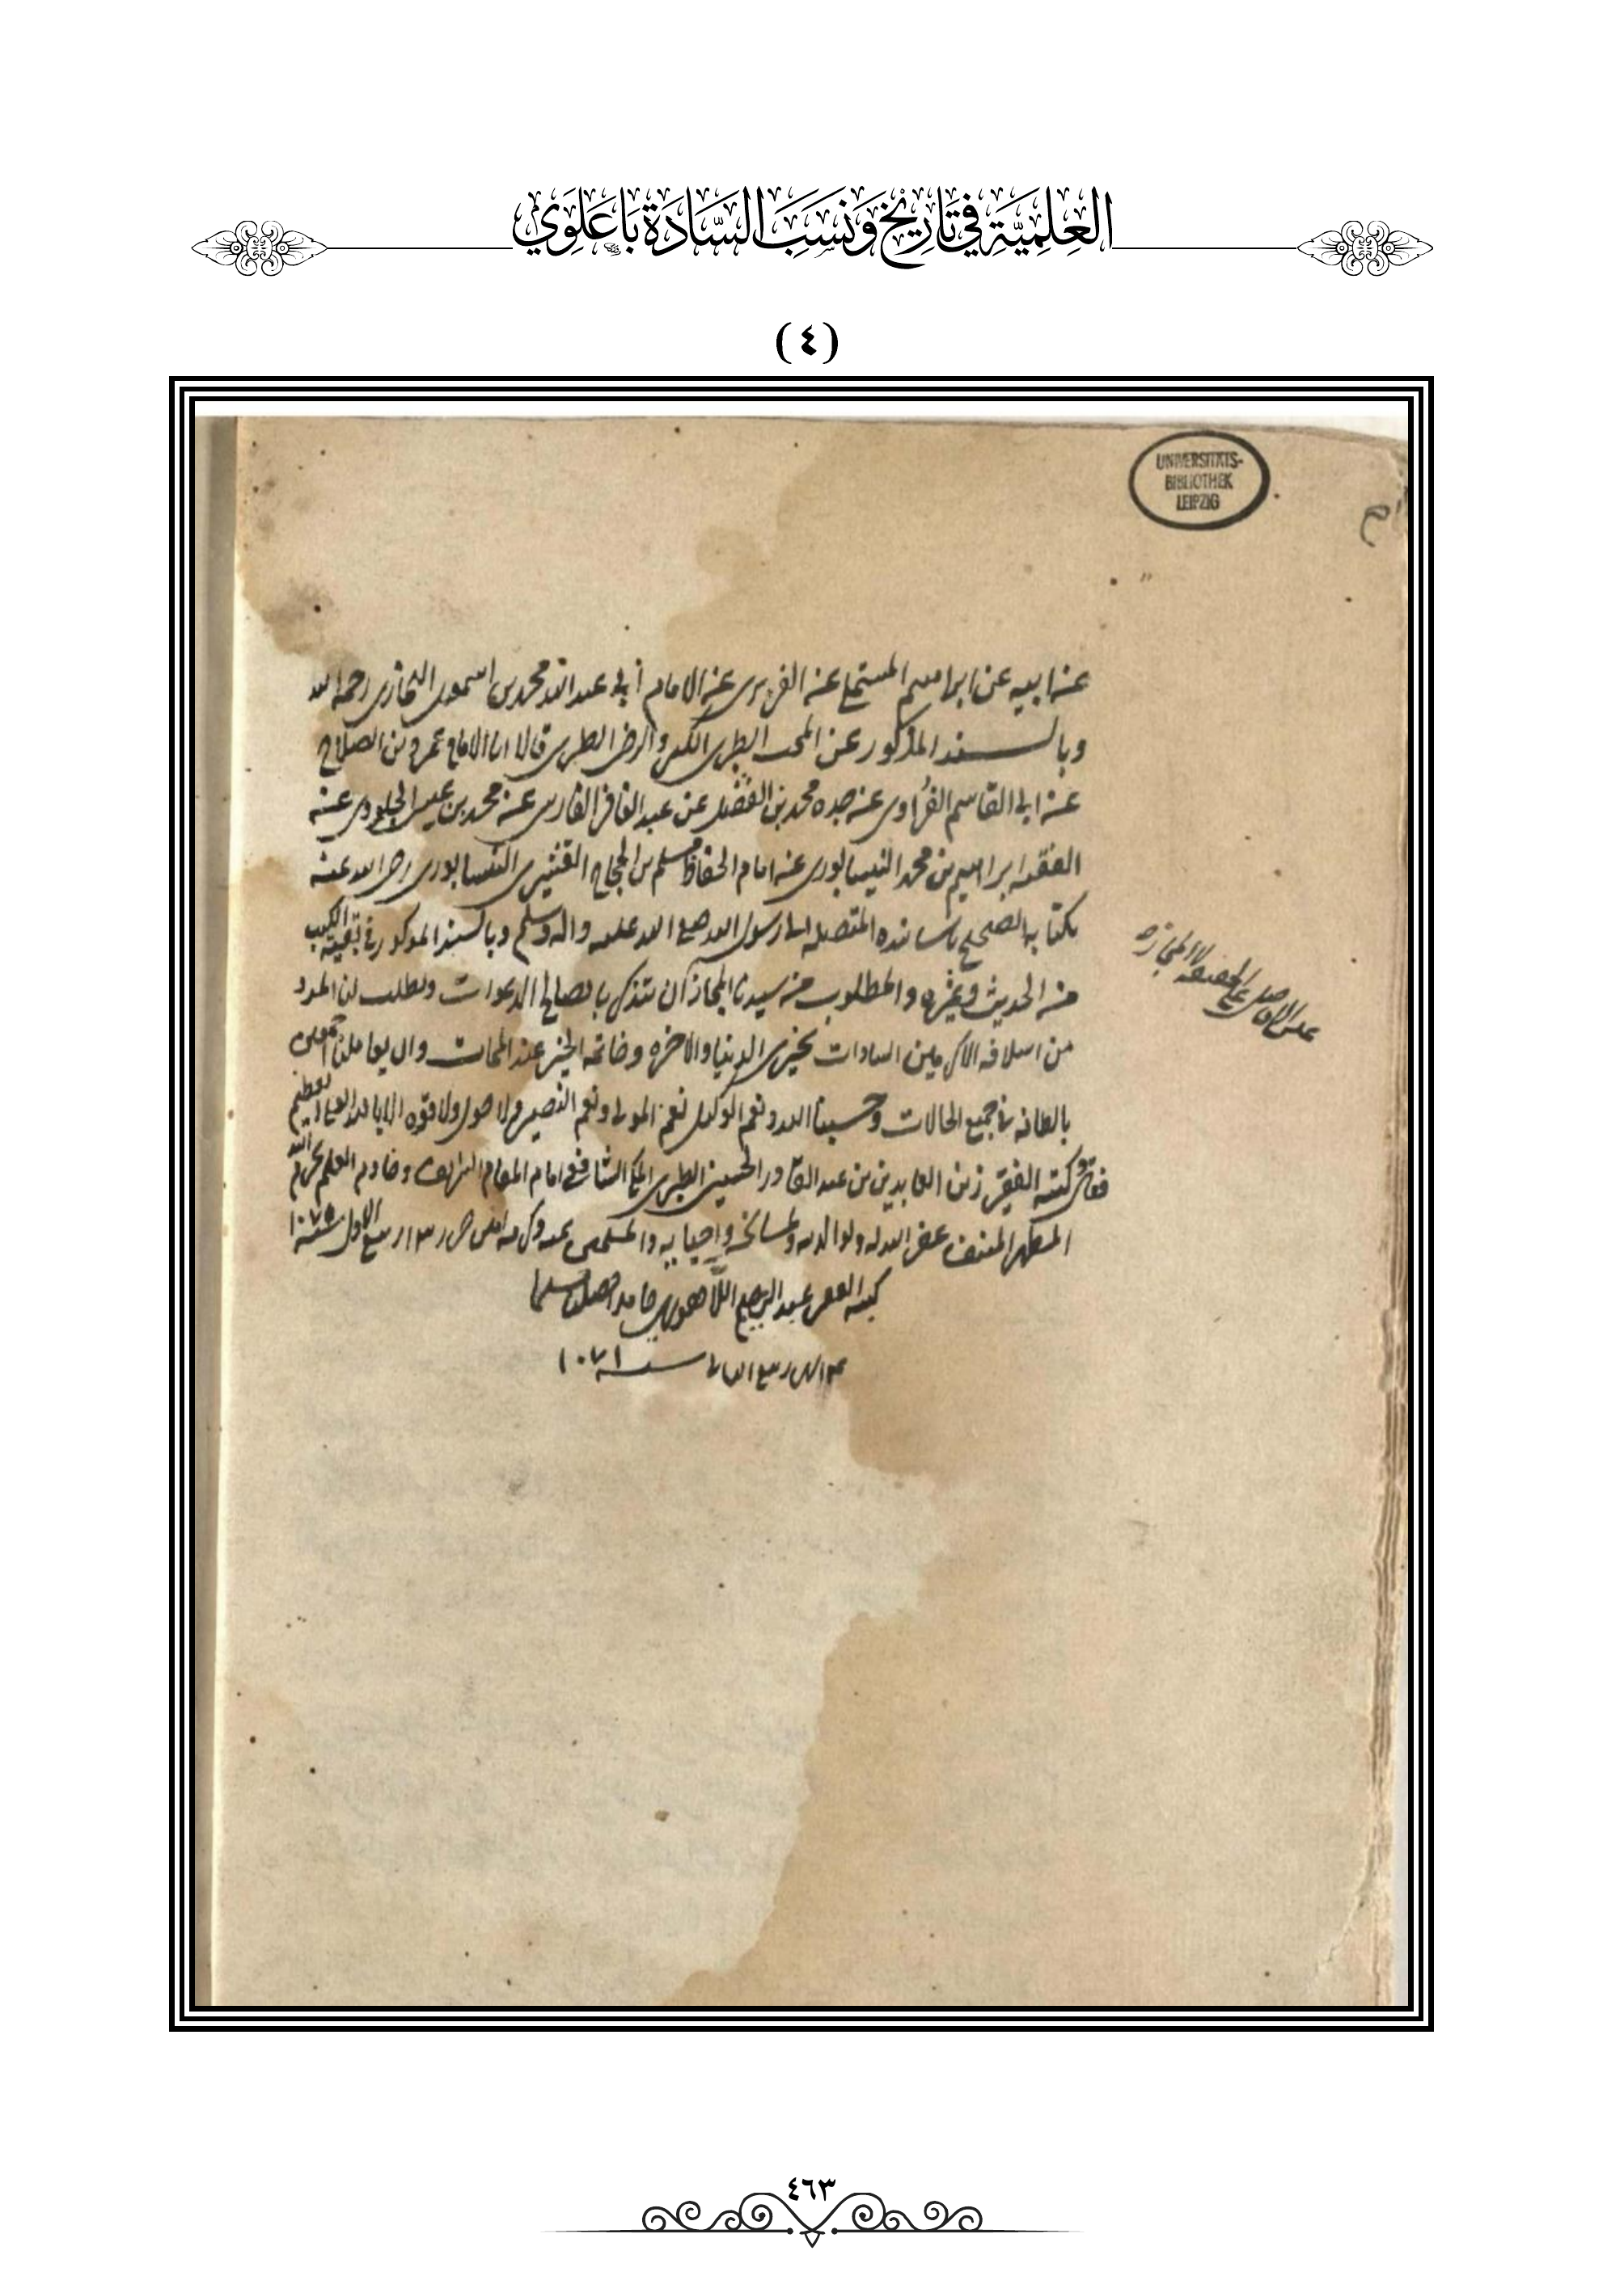 العِلْمِيَّة في تَارِيْخ وَنَسَبِ السَّادَة بَاعَلَوِي
(٤)
UNIVERSITÄTS-
BIBLIOTHEK
LEIPZIG
عن ابيه عن ابراهيم المستملي عن الفربري عن الامام أبي عبد الله محمد بن اسمعيل البخاري رحمه الله
وبالسند المذكور عن المحب الطبري الكبير والرضي الطبري قالا انا الامام عمرو بن الصلاح
عن ابي القاسم الفُراوي عن جده محمد بن الفضل عن عبد الغافر الفارسي عن محمد بن عيسى الجلودي عن
الفقيه ابراهيم بن محمد النيسابوري عن امام الحفاظ مسلم بن الحجاج القشيري النيسابوري رضي الله عنه
بكتابه الصحيح باسانيده المتصله الى رسول الله صلى الله عليه واله وسلم وبالسند المذكور في بقية الكتب
من الحديث وغيره والمطلوب من سيدنا المجاز أن يتذكر بالصالح الدعوات ويطلب لنا المدد
من اسلافه الاكرمين السادات بخيري الدنيا والاخره وخاتمة الخير عند الممات وان يعاملنا
بالطافه في جميع الحالات وحسبنا الله ونعم الوكيل نعم المولى ونعم النصير ولا حول ولا قوه الا بالله العلي العظيم
كتبه الفقير زين العابدين بن عبد القادر الحسيني الطبري المكي الشافعي امام المقام الشريف وخادم العلم بحرم الله
المطهر المنيف عفى الله له ولوالديه ولمشائخه واحبابه والمسلمين بمنه وكرمه ربيع الاول سنة
كتبه الفقير عبد الله حامدا مصليا مسلما
ربيع الثاني سنه ١٠٧١
على الاصل
٤٦٣